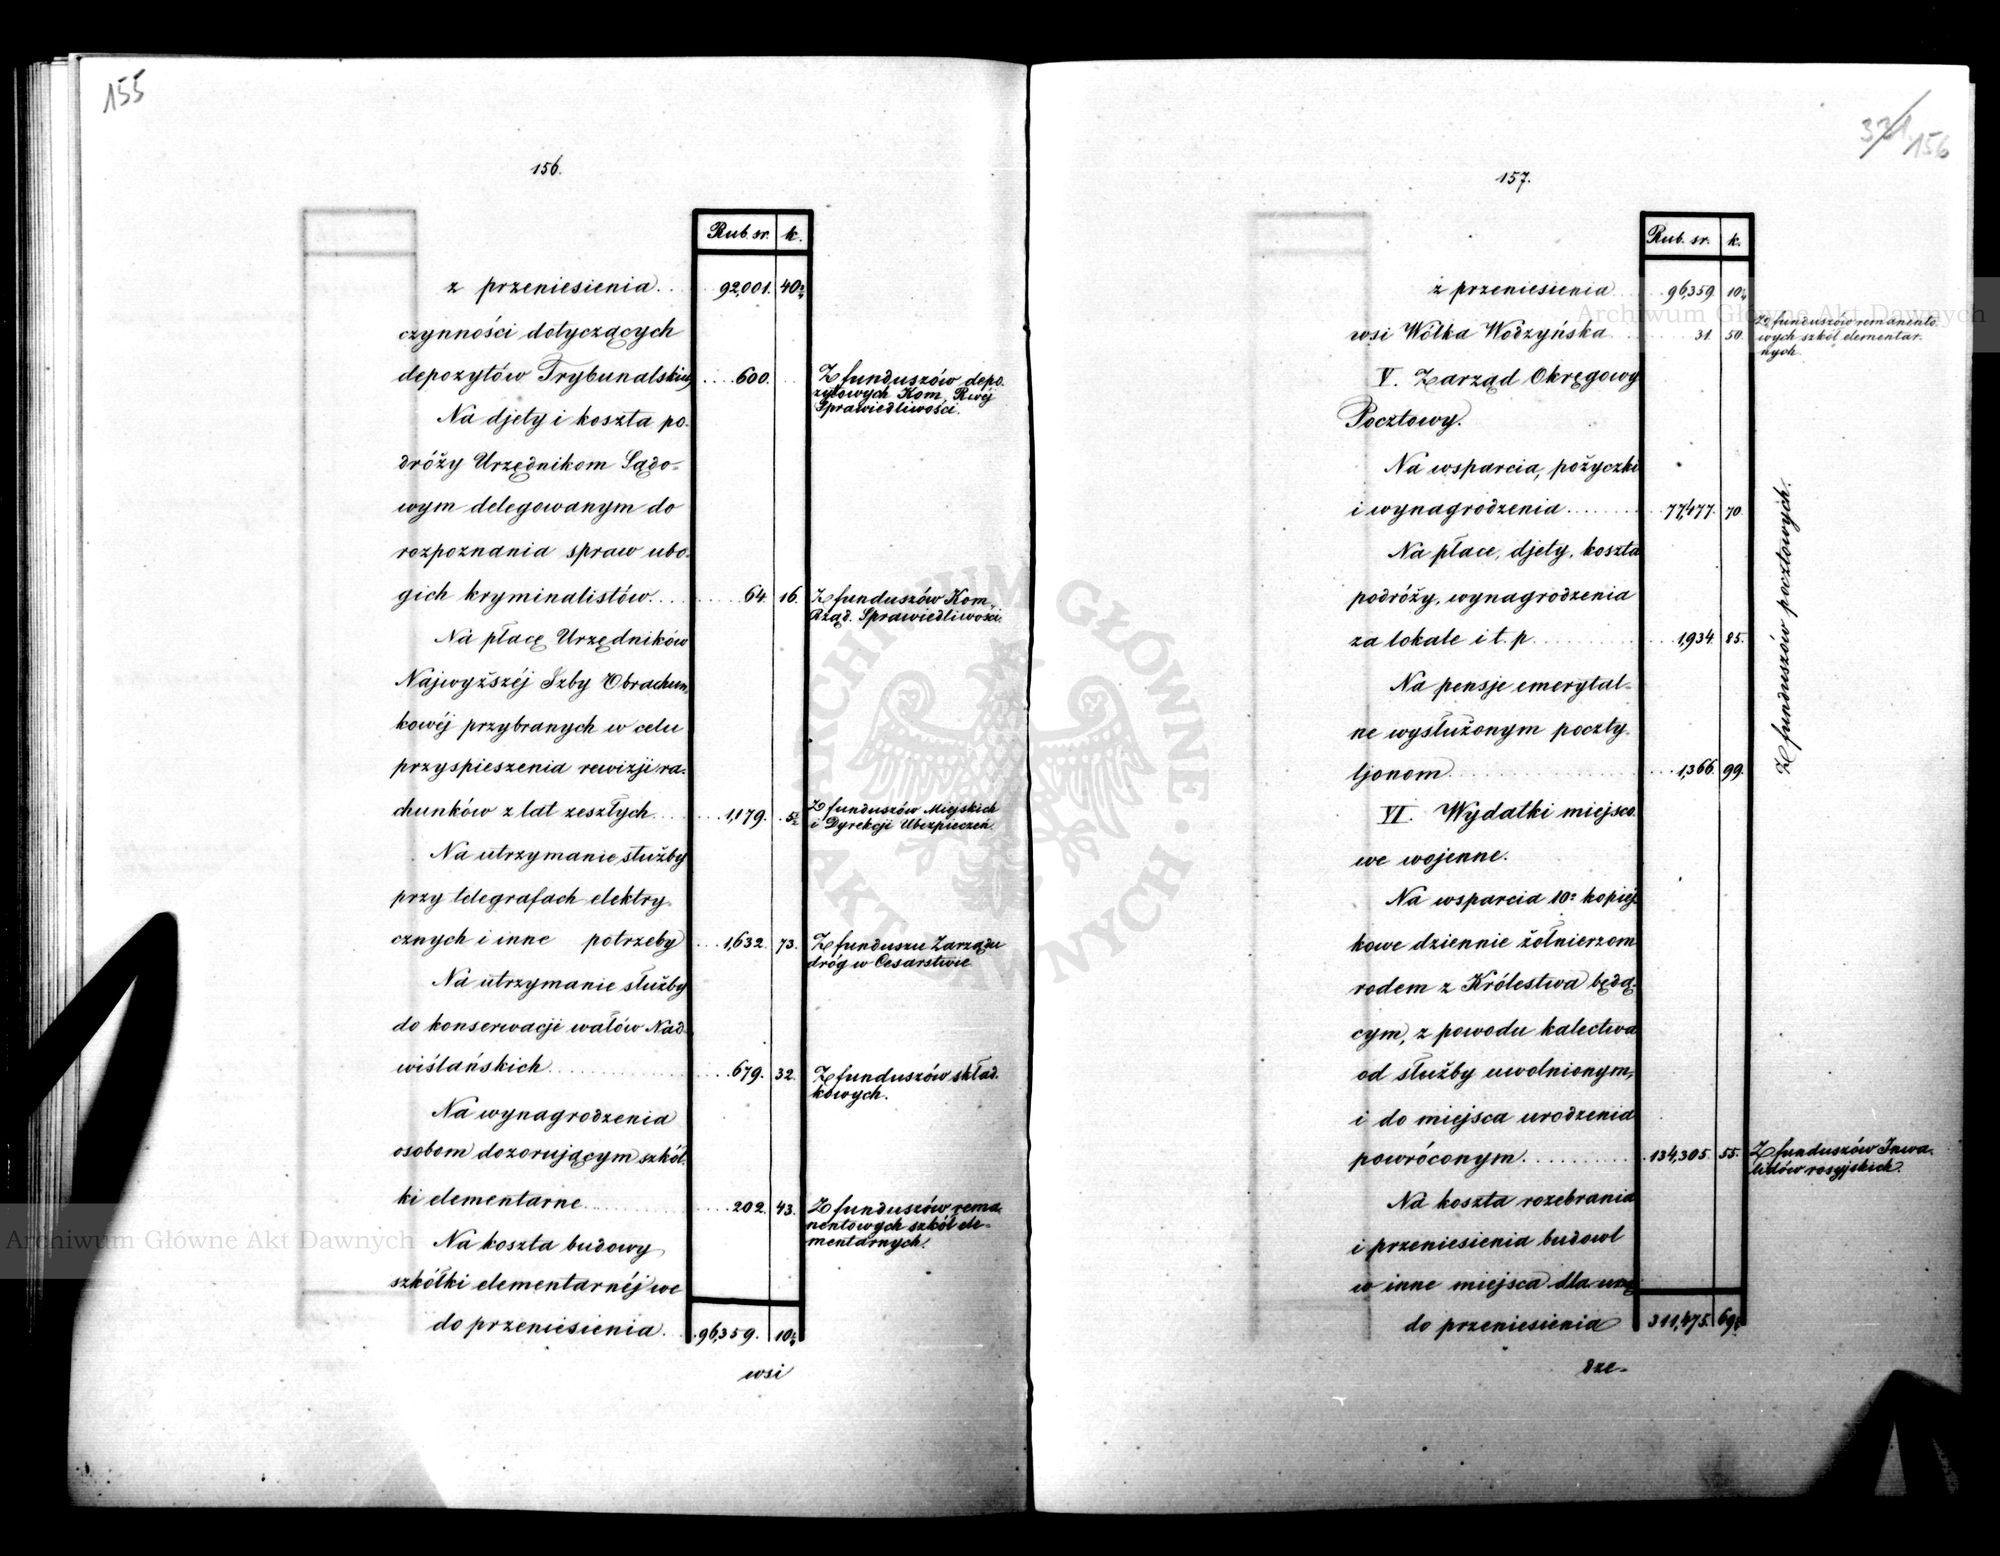 155
156.
Rub. sr. k.
z przeniesienia . . 92,001. 40 2/4
czynności dotyczących
depozytów Trybunalskich . . . . 600. . .
Z funduszów depo-
zytowych Kom. Rząd.
Sprawiedliwości.
Na djety i koszta po-
dróży Urzędnikom Sądo-
wym delegowanym do
rozpoznania spraw ubo-
gich kryminalistów. . . . 64. 16.
Z funduszów Kom.
Rząd. Sprawiedliwości.
Na płacę Urzędników
Najwyższéj Izby Obrachun-
kowéj przybranych w celu
przyspieszenia rewizji ra-
chunków z lat zeszłych . . . 1,179. 5 1/2
Z funduszów Miejskich
i Dyrekcji Ubezpieczeń.
Na utrzymanie służby
przy telegrafach elektry-
cznych i inne potrzeby . . . 1,632. 73.
Z funduszu Zarządu
dróg w Cesarstwie
Na utrzymanie służby
do konserwacji wałów Nad-
wiślańskich . . . . . . 679. 32.
Z funduszów skład-
kowych.
Na wynagrodzenia
osobom dozorującym szkół-
ki elementarne . . . . . . 202. 43.
Z funduszów rema-
nentowych szkół ele-
mentarnych.
Na koszta budowy
szkółki elementarnéj we
do przeniesienia. . . 96,359. 10
wsi
321 156
157.
Rub. sr. k.
z przeniesienia . . . 96,359 10
wsi Wólka Wodzyńska . . . 31. 50.
Z funduszów remanento-
wych szkół elementar-
nych.
V. Zarząd Okręgowy
Pocztowy.
Na wsparcia, pożyczki
i wynagrodzenia . . . . . . 77,477. 70.
Na płace, djety, koszta
podróży, wynagrodzenia
za lokale i t. p . . . . . . 1,934. 85.
Na pensje emerytal-
ne wysłużonym poczty-
ljonom . . . . . . 1,366. 99.
Z funduszów pocztowych.
VI. Wydatki miejsco-
we wojenne.
Na wsparcia 10º kopiej-
kowe dziennie żołnierzom
rodem z Królestwa będą-
cym, z powodu kalectwa
od służby uwolnionym,
i do miejsca urodzenia
powróconym. . . . . . 134,305. 55.
Z funduszów Inwa-
lidów rosyjskich.
Na koszta rozebrania
i przeniesienia budowl
w inne miejsca dla urzą
do przeniesienia 311,475. 69
dze-
Archiwum Główne Akt Dawnych
Archiwum Główne Akt Dawnych
ARCHIWUM GŁÓWNE AKT DAWNYCH